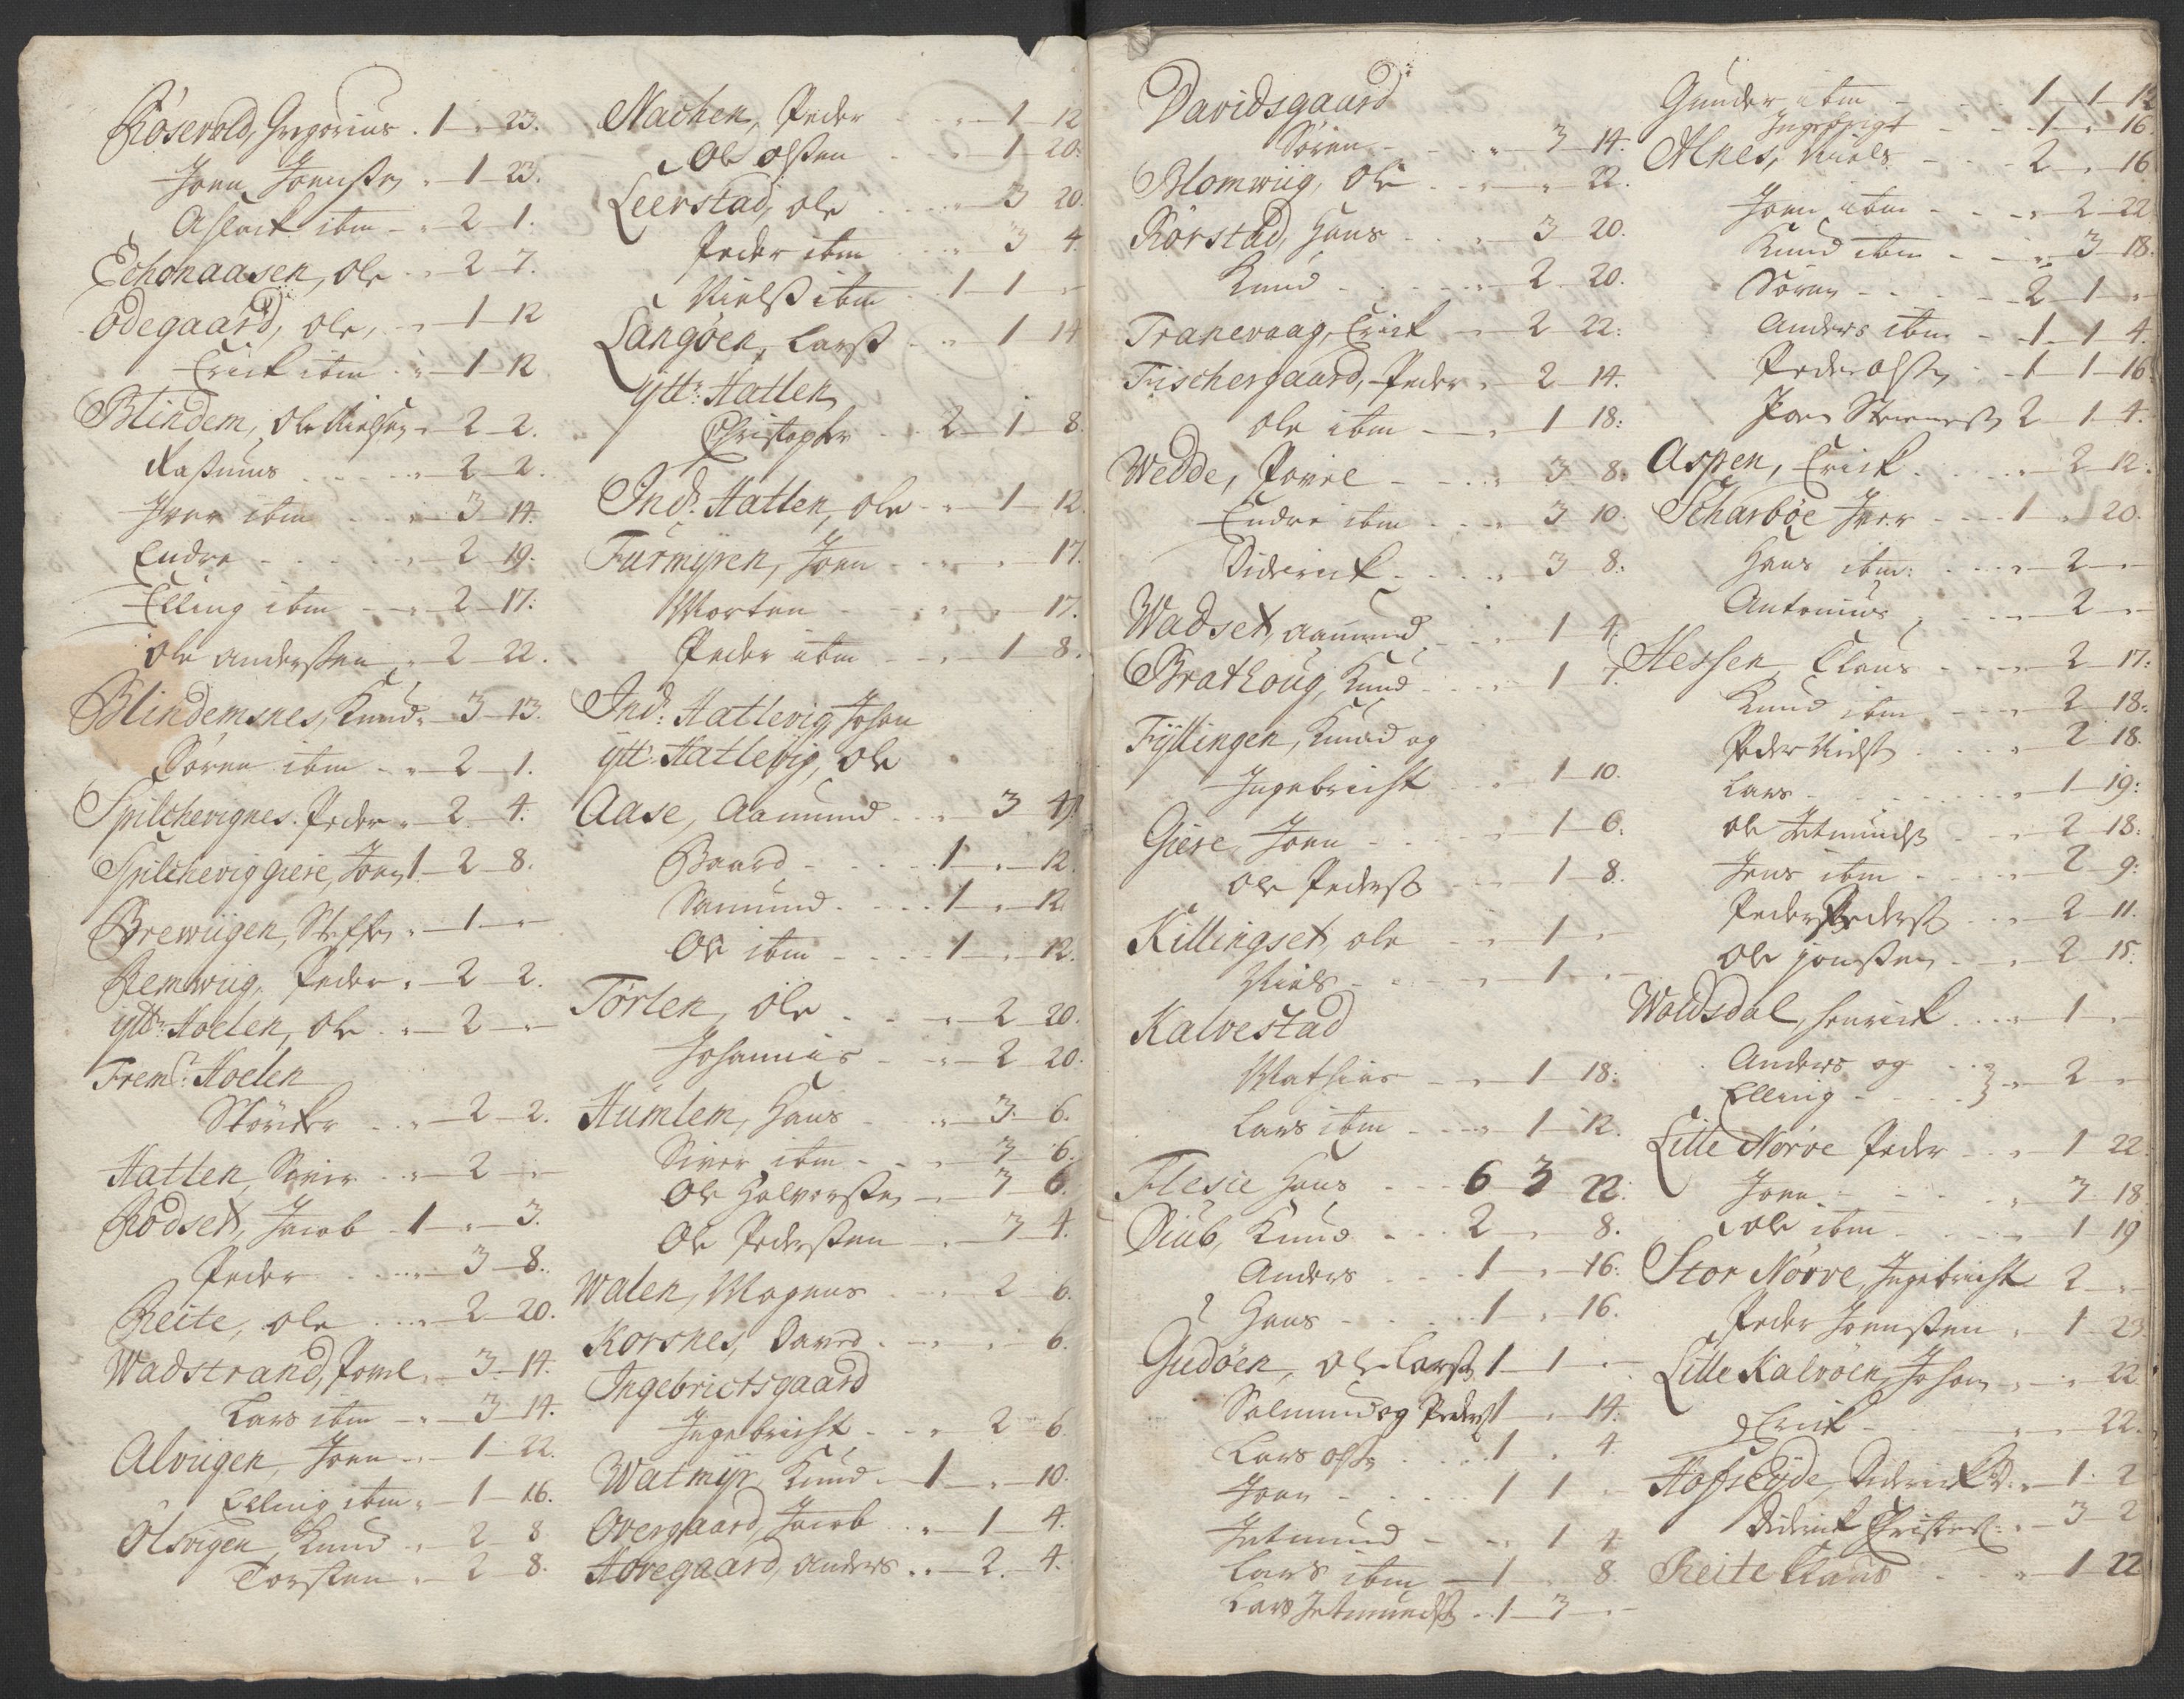 Rösevold, Gregorius . 1 „ 23.
Joen Joensen „ 1 23.
Aslack ibm „ 2 1.
Echonaasen, Ole „ 2 7.
Ödegaard, Ole, „ 1 12
Erick ibm „ 1 12
Blindem, Ole Nielsen „ 2 2.
Rasmus „ 2 2.
Iver ibm „ 3 14.
Endre „ 2 19.
Elling ibm „ 2 17.
Ole Anderssen „ 2 22.
Blindemsnes, Knud „ 3 13.
Sören ibm „ 2 1.
Spilchevignes. Peder „ 2 4.
Spilchevig giere, Joen 1 2 8.
Brewiigen, Steffen „ 1 „
Remwiig. Peder „ 2 2.
Ytt: Hoelen, Ole „ 2 „
Frem: Hoelen
Störcker „ 2 2.
Hatlen, Siver „ 2 „
Rödset, Jacob 1 „ 3.
Peder „ 3 8.
Reite, Ole „ 2 20.
Wadstrand, Povel „ 3 14.
Lars ibm „ 3 14.
Alviigen, Joen „ 1 22.
Elling ibm „ 1 16.
Olsvigen, Knud „ 2 8
Torsten „ 2 8.
Nachen, Peder „ 1 12
Ole Olsen „ 1 20.
Leerstad, Ole „ 3 20.
Peder ibm „ 3 4.
Niels ibm 1 1 „
Langöen, Lars „ 1 14
Ytt: Hatlen
Christopher 2 1 8.
Ind: Hatlen, Ole „ 1 12.
Furmyren, Joen „ „ 17.
Morten „ „ 17.
Peder ibm „ 1 8.
Ind: Hatlevig, Johan
Ytt: Hatlevig, Ole
Aase, Aamund „ 3 4
Baard 1 „ 12.
Samund 1 „ 12.
Ole ibm 1 „ 12.
Törlen, Ole „ 2 20.
Johannis „ 2 20.
Humlem, Hans „ 3 6.
Siver ibm „ 3 6.
Ole Halvorsen „ 3 6.
Ole Pedersen „ 3 4.
Walen, Mogens „ 2 6.
Korsnes, David „ „ 6.
Ingebrictsgaard
Ingebricht „ 2 6
Watmyr Knud 1 „ 10.
Overgaard, Jacob „ 1 4.
Hovegaard, Anders „ 2 4.
Davidsgaard
Sören „ 3 14.
Blomwiig, Ole „ „ 22.
Rörstad, Hans „ 3 20.
Knud „ 2 20.
Tranevaag, Erick „ 2 22.
Fischergaard, Peder „ 2 14.
Ole ibm „ 1 18.
Wedde, Povel „ 3 8.
Endre ibm „ 3 10.
Diderick „ 3 8.
Wadset, Aamund „ 1 4.
Brathoug, Knud „ 1 7.
Fyllingen, Knud og
Ingebricht „ 1 10.
Giere, Joen „ 1 6.
Ole Peders „ 1 8.
Killingset, Ole „ 1 „
Niels „ 1 „
Kalvestad
Mathias „ 1 18.
Lars ibm „ 1 12.
Flesie Hans 6 3 22.
Diub, Knud 2 „ 8.
Anders 1 „ 16.
Hans 1 „ 16.
Gudöen, Ole Lars 1 1 „
Salmund og Peder 1 „ 14.
Lars Ols 1 „ 4.
Joen 1 1 „
Jetmund „ 1 4
Lars ibm 1 „ 8.
Lars Jetmunds 1 3 „
Gunder ibm 1 1 12
Ingebrigt 1 „ 16.
Alnes, Niels 2 „ 16
Joen ibm „ 2 22
Knud ibm „ 3 18.
Sören 2 1 „
Anders ibm 1 1 4.
Peder Ols 1 1 16.
2 1 4.
Aspen, Erick „ 2 12.
Scharböe Iver 1 „ 20.
Hans ibm: „ 2 „
Antonius „ 2 „
Hessen Claus „ 2 17.
Knud ibm „ 2 18.
Peder Niels „ 2 18.
Lars „ 1 19.
Ole Jetmunds „ 2 18.
Jens ibm „ 2 9.
Peder Peders „ 2 11.
Ole Jonssen „ 2 15.
Waldsdal, Henrick „ 1 „
Anders og
Elling } „ 2 „
Litle Nörve Peder „ 1 22
Joen „ 3 18
Ole ibm „ 1 19
Stor Nörve, Ingebricht 2 „
Peder Joensen „ 1 23.
Litle Kalvöen, Johan „ „ 22
Erick „ „ 22.
Hofseyde, Diderick „ 1 2
Diderick Christens: „ 3 2
Reite Claus „ 1 22